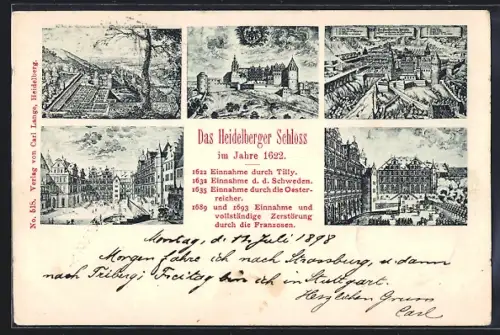 No. 518. Verlag von Carl Lange, Heidelberg.
Das Heidelberger Schloss
im Jahre 1622.
1622 Einnahme durch Tilly.
1632 Einnahme d. d. Schweden.
1635 Einnahme durch die Oester-
reicher.
1689 und 1693 Einnahme und
vollständige Zerstörung
durch die Franzosen.
Montag, d. 11. Juli 1898
Morgen fahre ich nach Strassburg, u. dann
nach Triberg; Freitag bin ich in Stuttgart.
Herzlichen Gruss
Carl